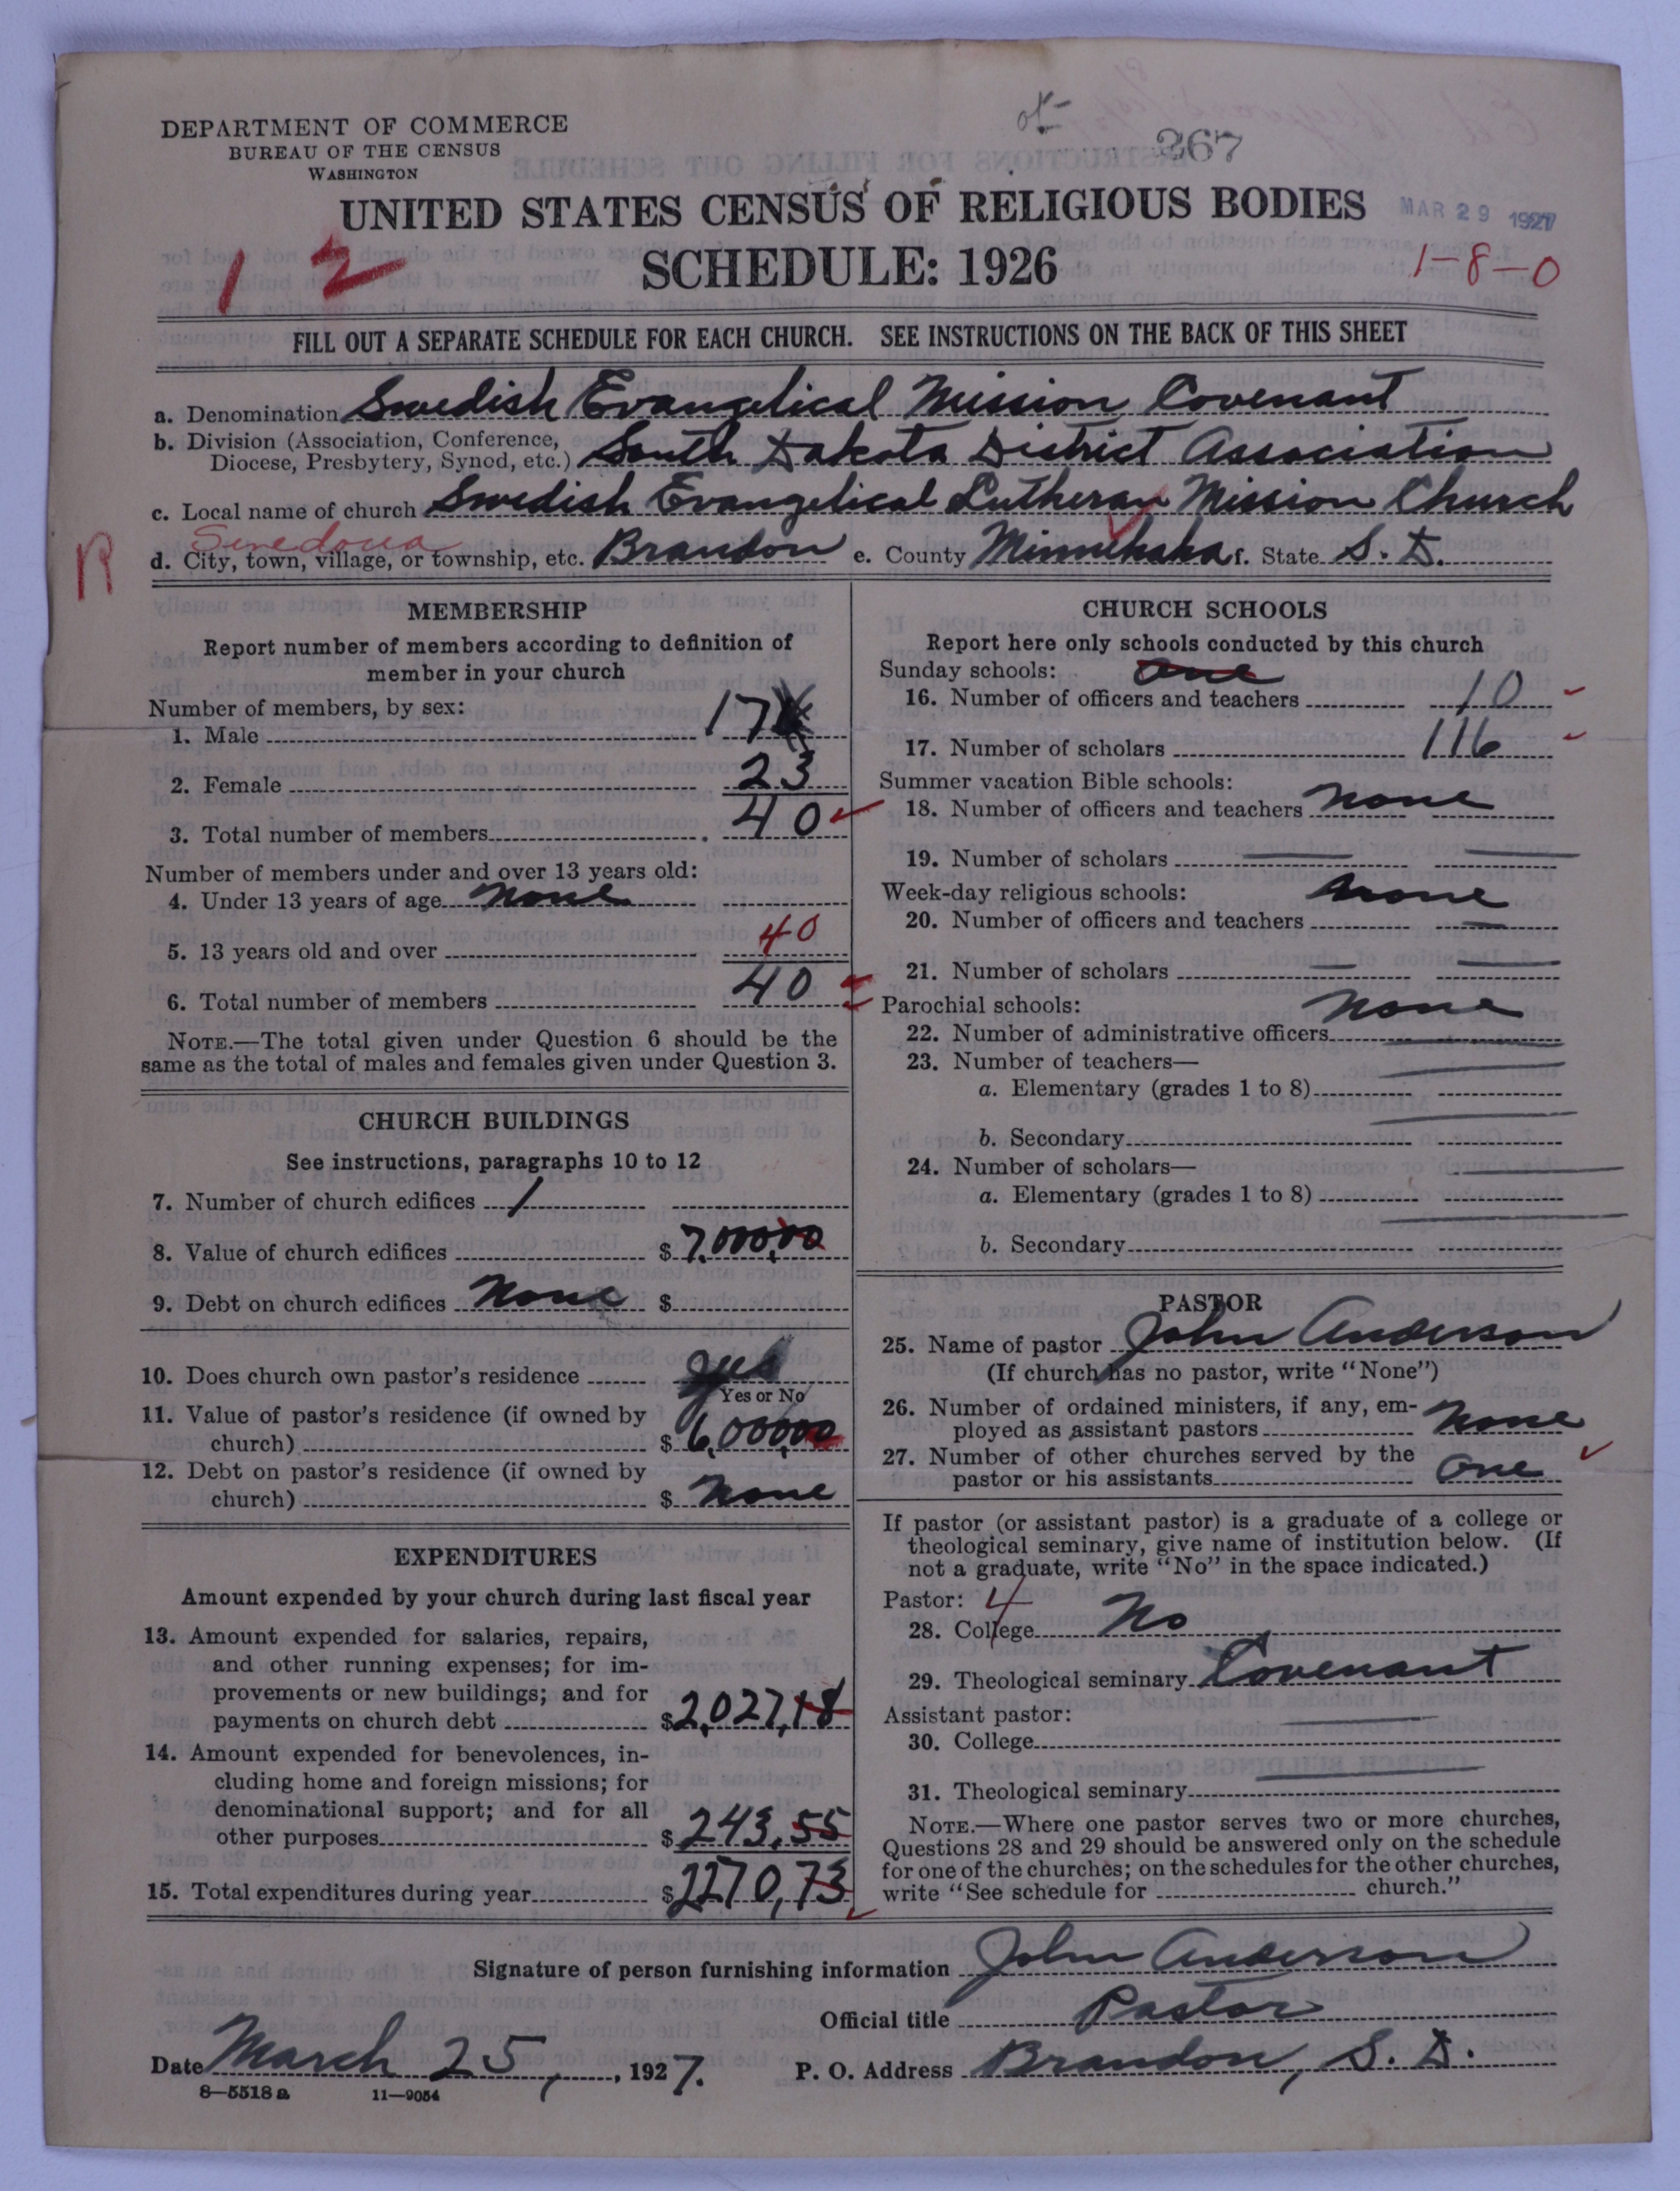 DEPARTMENT OF COMMERCE
BUREAU OF THE CENSUS
WASHINGTON
ok
267
UNITED STATES CENSUS OF RELIGIOUS BODIES
MAR 29 1927
SCHEDULE: 1926
1 2
1-8-0
FILL OUT A SEPARATE SCHEDULE FOR EACH CHURCH. SEE INSTRUCTIONS ON THE BACK OF THIS SHEET
a. Denomination Swedish Evangelical Mission Covenant
b. Division (Association, Conference, Diocese, Presbytery, Synod, etc.) South Dakota District Association
c. Local name of church Swedish Evangelical Lutheran Mission Church
R
Swedona
d. City, town, village, or township, etc. Brandon e. County Minnehaha f. State S. D.
MEMBERSHIP
Report number of members according to definition of
member in your church
Number of members, by sex:
1. Male 17
2. Female 23
3. Total number of members 40
Number of members under and over 13 years old:
4. Under 13 years of age none
5. 13 years old and over 40
6. Total number of members 40
NOTE.—The total given under Question 6 should be the
same as the total of males and females given under Question 3.
CHURCH BUILDINGS
See instructions, paragraphs 10 to 12
7. Number of church edifices 1
8. Value of church edifices $ 7,000,00
9. Debt on church edifices None $
10. Does church own pastor's residence yes
Yes or No
11. Value of pastor's residence (if owned by
church) $ 6,000,00
12. Debt on pastor's residence (if owned by
church) $ none
EXPENDITURES
Amount expended by your church during last fiscal year
13. Amount expended for salaries, repairs,
and other running expenses; for im-
provements or new buildings; and for
payments on church debt $ 2,027,18
14. Amount expended for benevolences, in-
cluding home and foreign missions; for
denominational support; and for all
other purposes $ 243,55
15. Total expenditures during year $ 2270,73
CHURCH SCHOOLS
Report here only schools conducted by this church
Sunday schools: One
16. Number of officers and teachers 10
17. Number of scholars 116
Summer vacation Bible schools:
18. Number of officers and teachers none
19. Number of scholars
Week-day religious schools: none
20. Number of officers and teachers
21. Number of scholars
Parochial schools: none
22. Number of administrative officers
23. Number of teachers—
a. Elementary (grades 1 to 8)
b. Secondary
24. Number of scholars—
a. Elementary (grades 1 to 8)
b. Secondary
PASTOR
25. Name of pastor John Anderson
(If church has no pastor, write "None")
26. Number of ordained ministers, if any, em-
ployed as assistant pastors none
27. Number of other churches served by the
pastor or his assistants One
If pastor (or assistant pastor) is a graduate of a college or
theological seminary, give name of institution below. (If
not a graduate, write "No" in the space indicated.)
Pastor: 4
28. College No
29. Theological seminary Covenant
Assistant pastor:
30. College
31. Theological seminary
NOTE.—Where one pastor serves two or more churches,
Questions 28 and 29 should be answered only on the schedule
for one of the churches; on the schedules for the other churches,
write "See schedule for church."
Signature of person furnishing information John Anderson
Official title Pastor
Date March 25, , 1927.
P. O. Address Brandon, S. D.
8—5518 a 11—9054